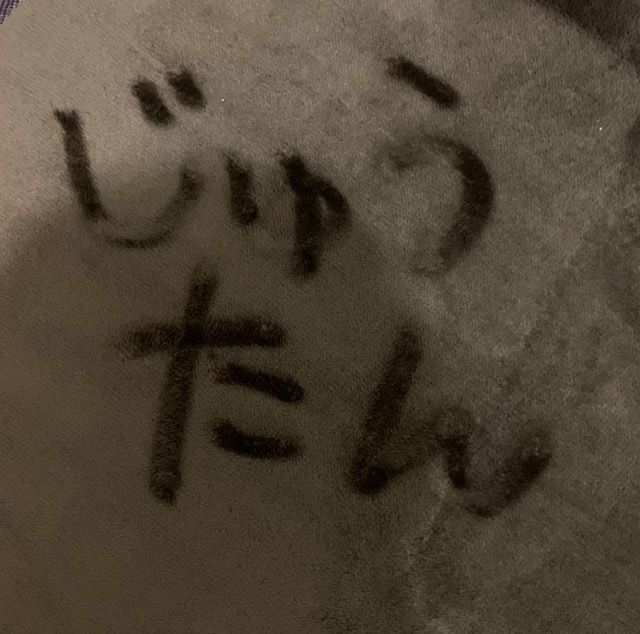 じゅう
たん